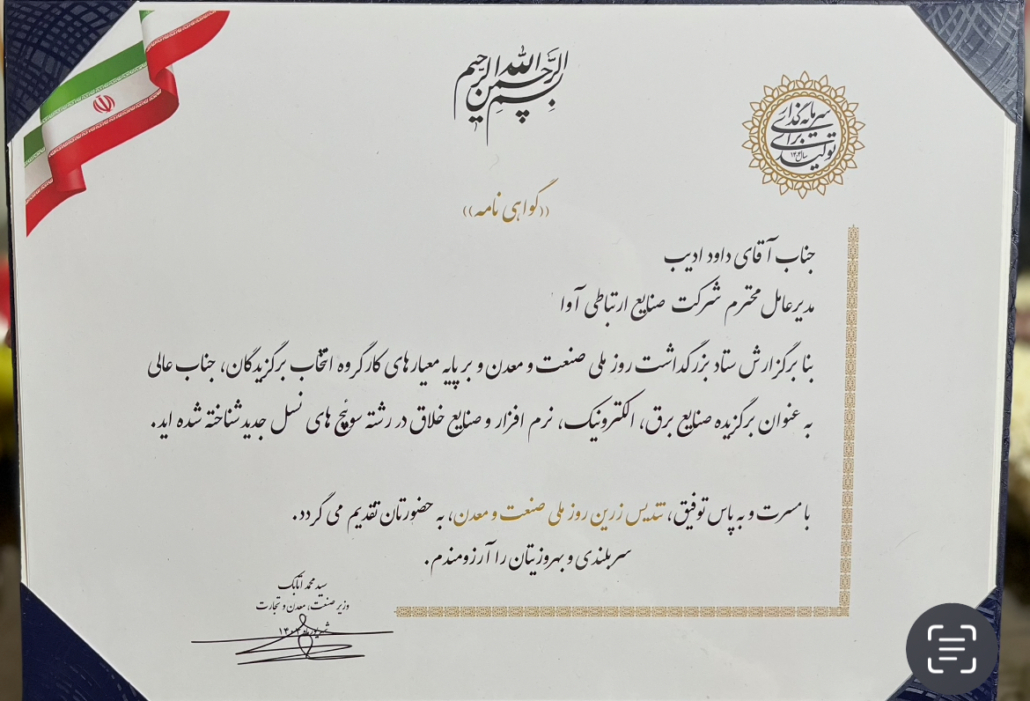 بسم الله الرحمن الرحیم
سرمایه‌گذاری
برای
تولید
((گواهی نامه))
جناب آقای داود ادیب
مدیرعامل محترم شرکت صنایع ارتباطی آوا
بنا برگزارش ستاد بزرگداشت روز ملی صنعت و معدن و بر پایه معیارهای کارگروه انتخاب برگزیدگان، جناب عالی
به عنوان برگزیده صنایع برق، الکترونیک، نرم افزار و صنایع خلاق در رشته سوئیچ های نسل جدید شناخته شده اید.
با مسرت و به پاس توفیق، تندیس زرین روز ملی صنعت و معدن، به حضورتان تقدیم می گردد.
سربلندی و بهروزیتان را آرزومندم.
سید محمد اتابک
وزیر صنعت، معدن و تجارت